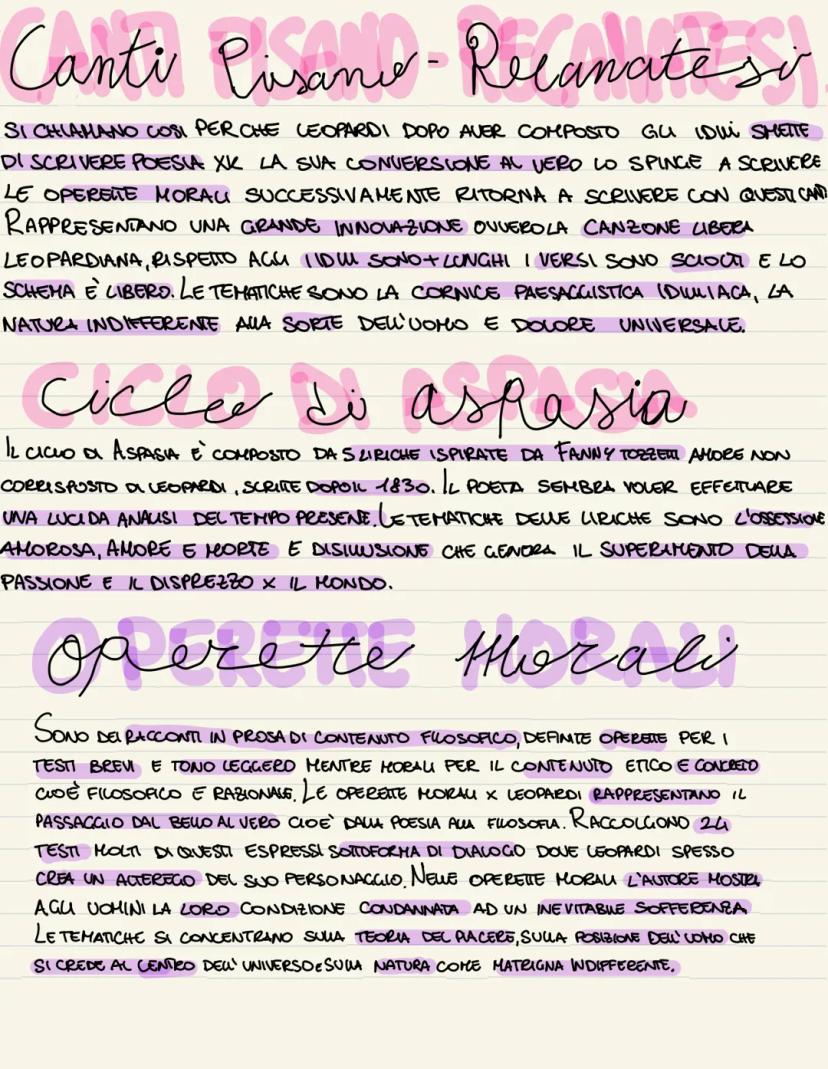 Canti Pisano - Recanatesi
SI CHIAMANO COSÌ PERCHE LEOPARDI DOPO AVER COMPOSTO GLI IDILLI SMETTE
DI SCRIVERE POESIA XK LA SUA CONVERSIONE AL VERO LO SPINGE A SCRIVERE
LE OPERETTE MORALI SUCCESSIVAMENTE RITORNA A SCRIVERE CON QUESTI CANTI
RAPPRESENTANO UNA GRANDE INNOVAZIONE OVVERO LA CANZONE LIBERA
LEOPARDIANA, RISPETTO AGLI IDILLI SONO + LUNGHI I VERSI SONO SCIOLTI E LO
SCHEMA È LIBERO. LE TEMATICHE SONO LA CORNICE PAESAGGISTICA IDILLIACA, LA
NATURA INDIFFERENTE ALLA SORTE DELL'UOMO E DOLORE UNIVERSALE.
Ciclo di aspasia
IL CICLO DI ASPASIA E' COMPOSTO DA 5 LIRICHE ISPIRATE DA FANNY TOZZETTI AMORE NON
CORRISPOSTO DI LEOPARDI, SCRITTE DOPO IL 1830. IL POETA SEMBRA VOLER EFFETTUARE
UNA LUCIDA ANALISI DEL TEMPO PRESENE. LE TEMATICHE DELLE LIRICHE SONO L'OSSESSIONE
AMOROSA, AMORE E MORTE E DISILLUSIONE CHE GENERA IL SUPERAMENTO DELLA
PASSIONE E IL DISPREZZO X IL MONDO.
Operette Morali
SONO DEI RACCONTI IN PROSA DI CONTENUTO FILOSOFICO, DEFINITE OPERETTE PER I
TESTI BREVI E TONO LEGGERO MENTRE MORALI PER IL CONTENUTO ETICO E CONCRETO
CIOÈ FILOSOFICO E RAZIONALE. LE OPERETTE MORALI X LEOPARDI RAPPRESENTANO IL
PASSAGGIO DAL BELLO AL VERO CIOE' DALLA POESIA ALLA FILOSOFIA. RACCOLGONO 24
TESTI MOLTI DI QUESTI ESPRESSI SOTTOFORMA DI DIALOGO DOVE LEOPARDI SPESSO
CREA UN ALTEREGO DEL SUO PERSONAGGIO. NELLE OPERETTE MORALI L'AUTORE MOSTRA
AGLI UOMINI LA LORO CONDIZIONE CONDANNATA AD UN INEVITABILE SOFFERENZA
LE TEMATICHE SI CONCENTRANO SULLA TEORIA DEL PIACERE, SULLA POSIZIONE DELL'UOMO CHE
SI CREDE AL CENTRO DELL'UNIVERSO E SULLA NATURA COME MATRIGNA INDIFFERENTE.